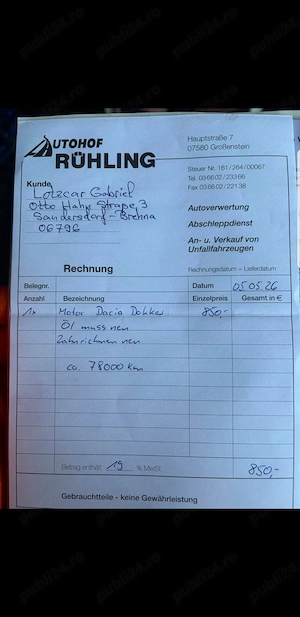 AUTOHOF
RÜHLING
Hauptstraße 7
07580 Großenstein
Steuer Nr. 161/264/00067
Tel. 03 66 02 / 233 66
Fax 03 66 02 / 221 38
Kunde
Lotzcar Gabriel
Otto Hahn Straße 3
Sandersdorf-Brehna
06796
Autoverwertung
Abschleppdienst
An- u. Verkauf von
Unfallfahrzeugen
Rechnung
Rechnungsdatum = Lieferdatum
Belegnr. Datum 05.05.26
Anzahl Bezeichnung Einzelpreis Gesamt in €
1x Motor Dacia Dokker 850,-
Öl muss neu
Zahnriemen neu
ca. 78000 km
Betrag enthält 19 % MwSt. 850,-
Gebrauchtteile - keine Gewährleistung